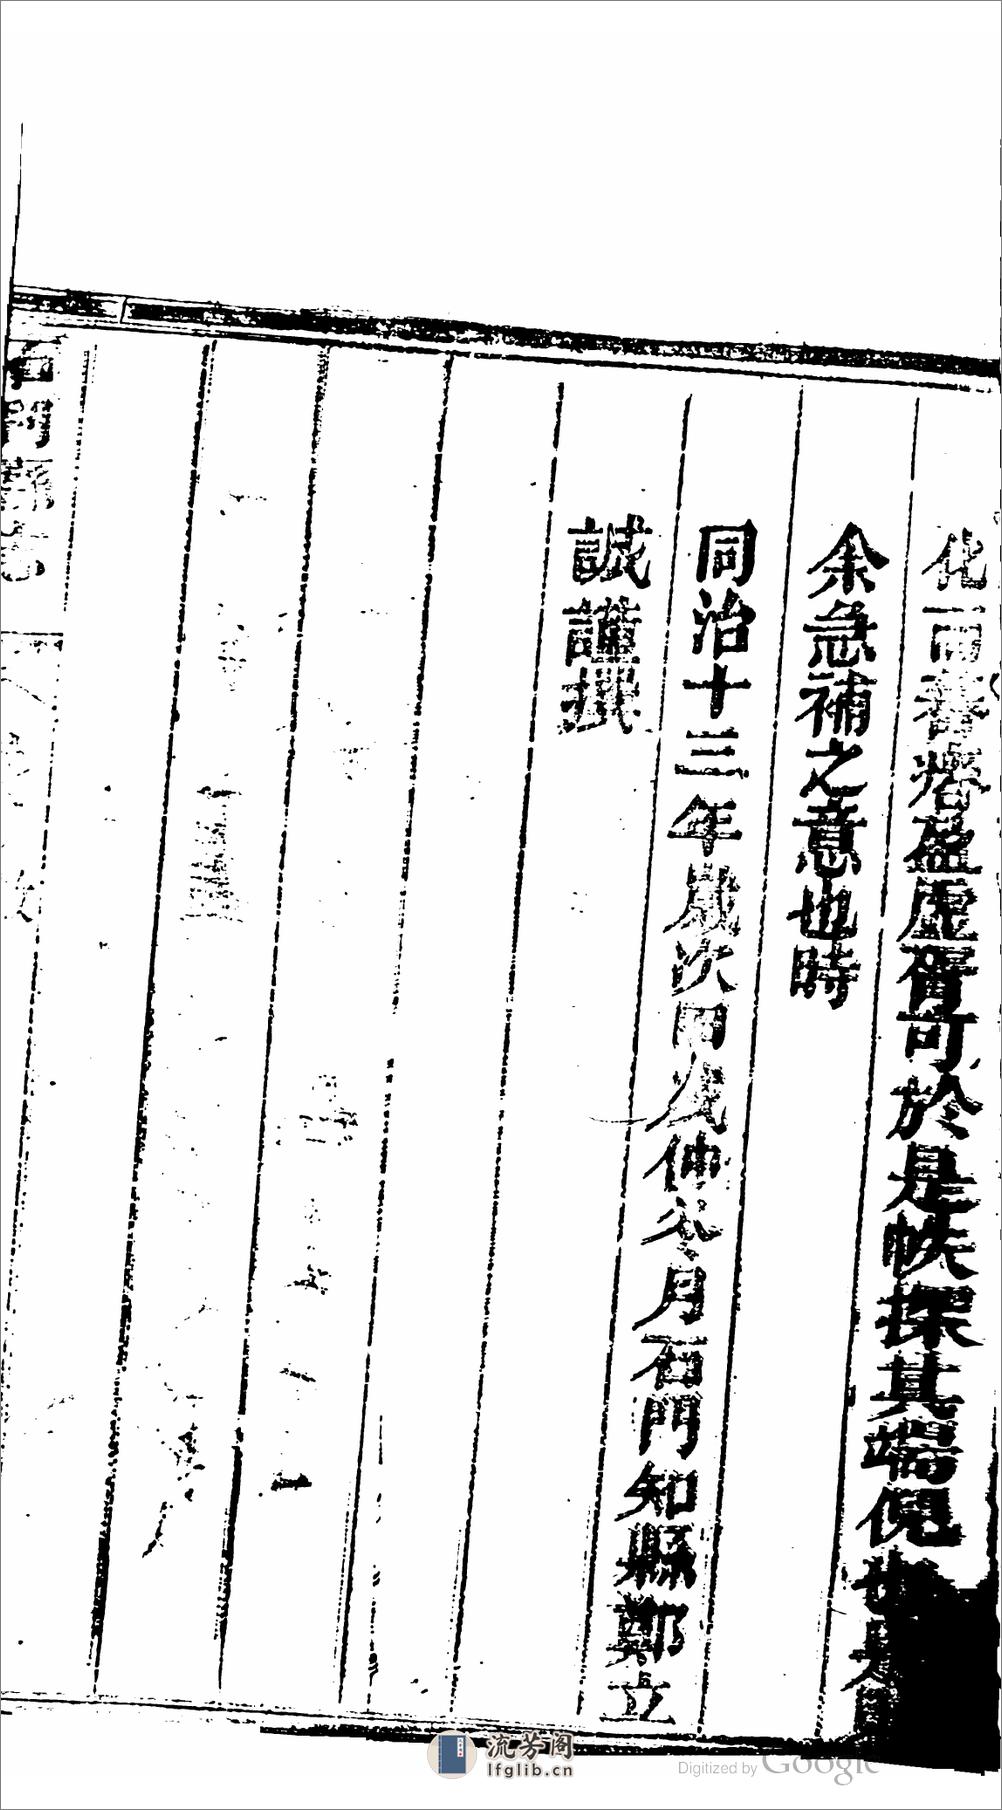 化而耆衆盈虛胥可於是帙探其端倪也是
余急補之意也時
同治十三年歲次甲戌仲冬月石門知縣鄭立
誠謹撰
石門鄉
流芳阁
lfglib.cn
Digitized by Google